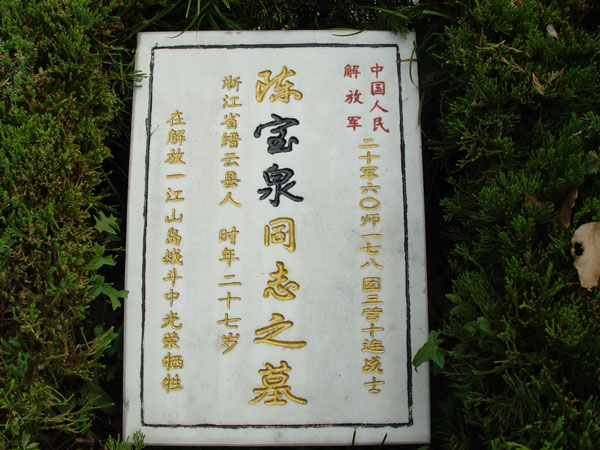 中国人民
解放军
二十军六〇师一七八团三营十连战士
陈宝泉同志之墓
浙江省缙云县人 时年二十七岁
在解放一江山岛战斗中光荣牺牲